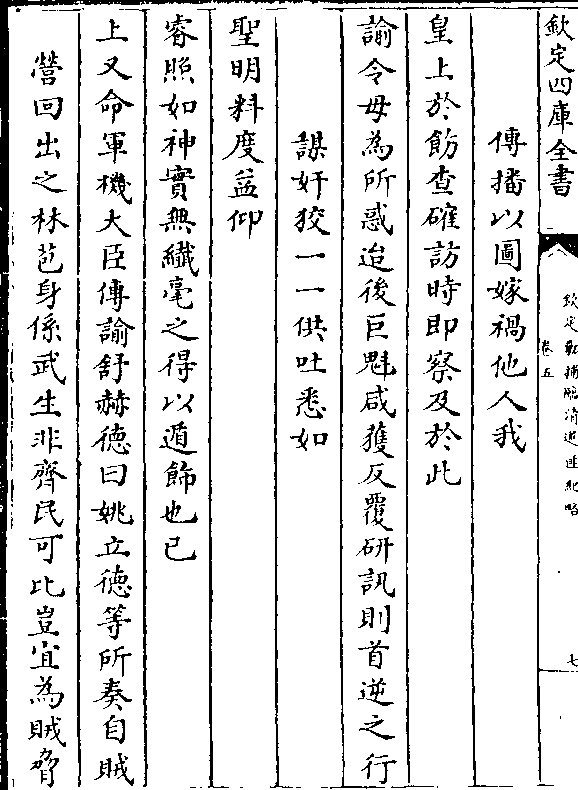 欽定四庫全書
欽定勦捕臨清逆匪紀略
卷五
七
傳播以圖嫁禍他人我
皇上於飭查確訪時即察及於此
諭令毋為所惑迨後巨魁咸獲反覆研訊則首逆之行
謀奸狡一一供吐悉如
聖明料度益仰
睿照如神實無纖毫之得以遁飾也已
上又命軍機大臣傳諭舒赫德曰姚立德等所奏自賊
營回出之林芭身係武生非齊民可比豈宜為賊脅